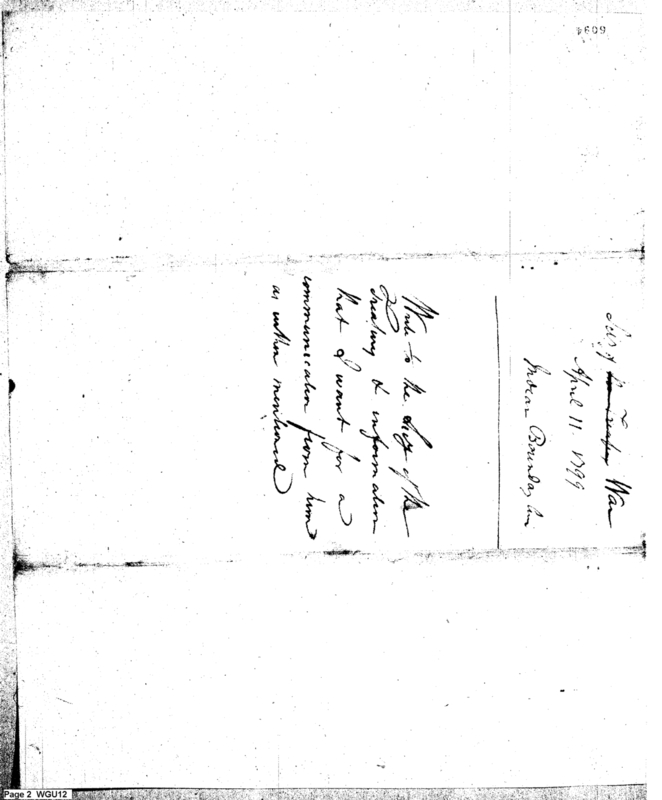 6094
Secy War
April 11. 1799
Indian Boundary line
Write to the Secy of the
Treasury & information
that I want for a
communication from him
as within mentioned
Page 2 WGU12